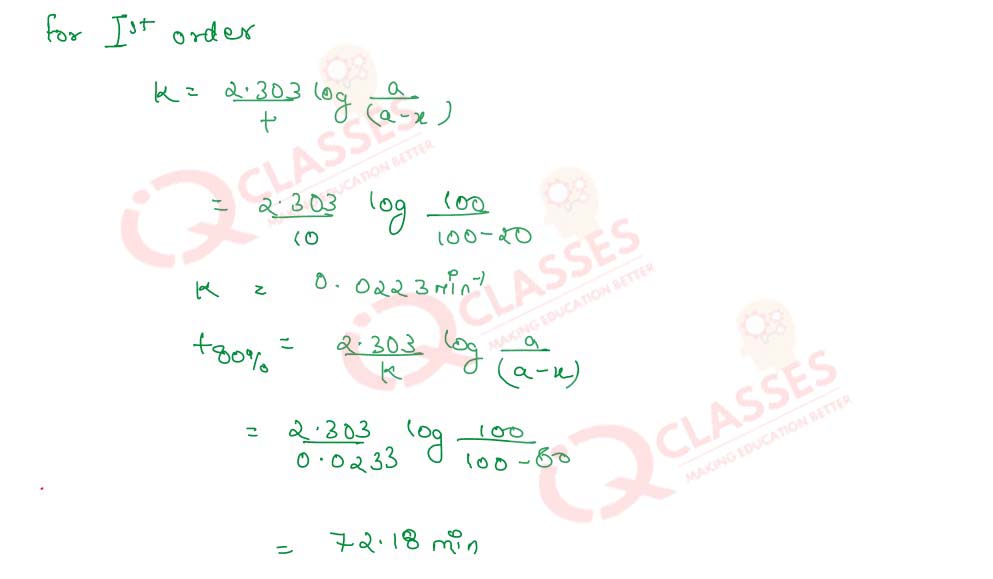 for Ist order
K = 2.303/t log a/(a-x)
= 2.303/10 log 100/100-20
K = 0.0223 min-1
t80% = 2.303/K log a/(a-x)
= 2.303/0.0233 log 100/100-80
= 72.18 min
iQ CLASSES
MAKING EDUCATION BETTER
iQ CLASSES
MAKING EDUCATION BETTER
iQ CLASSES
MAKING EDUCATION BETTER